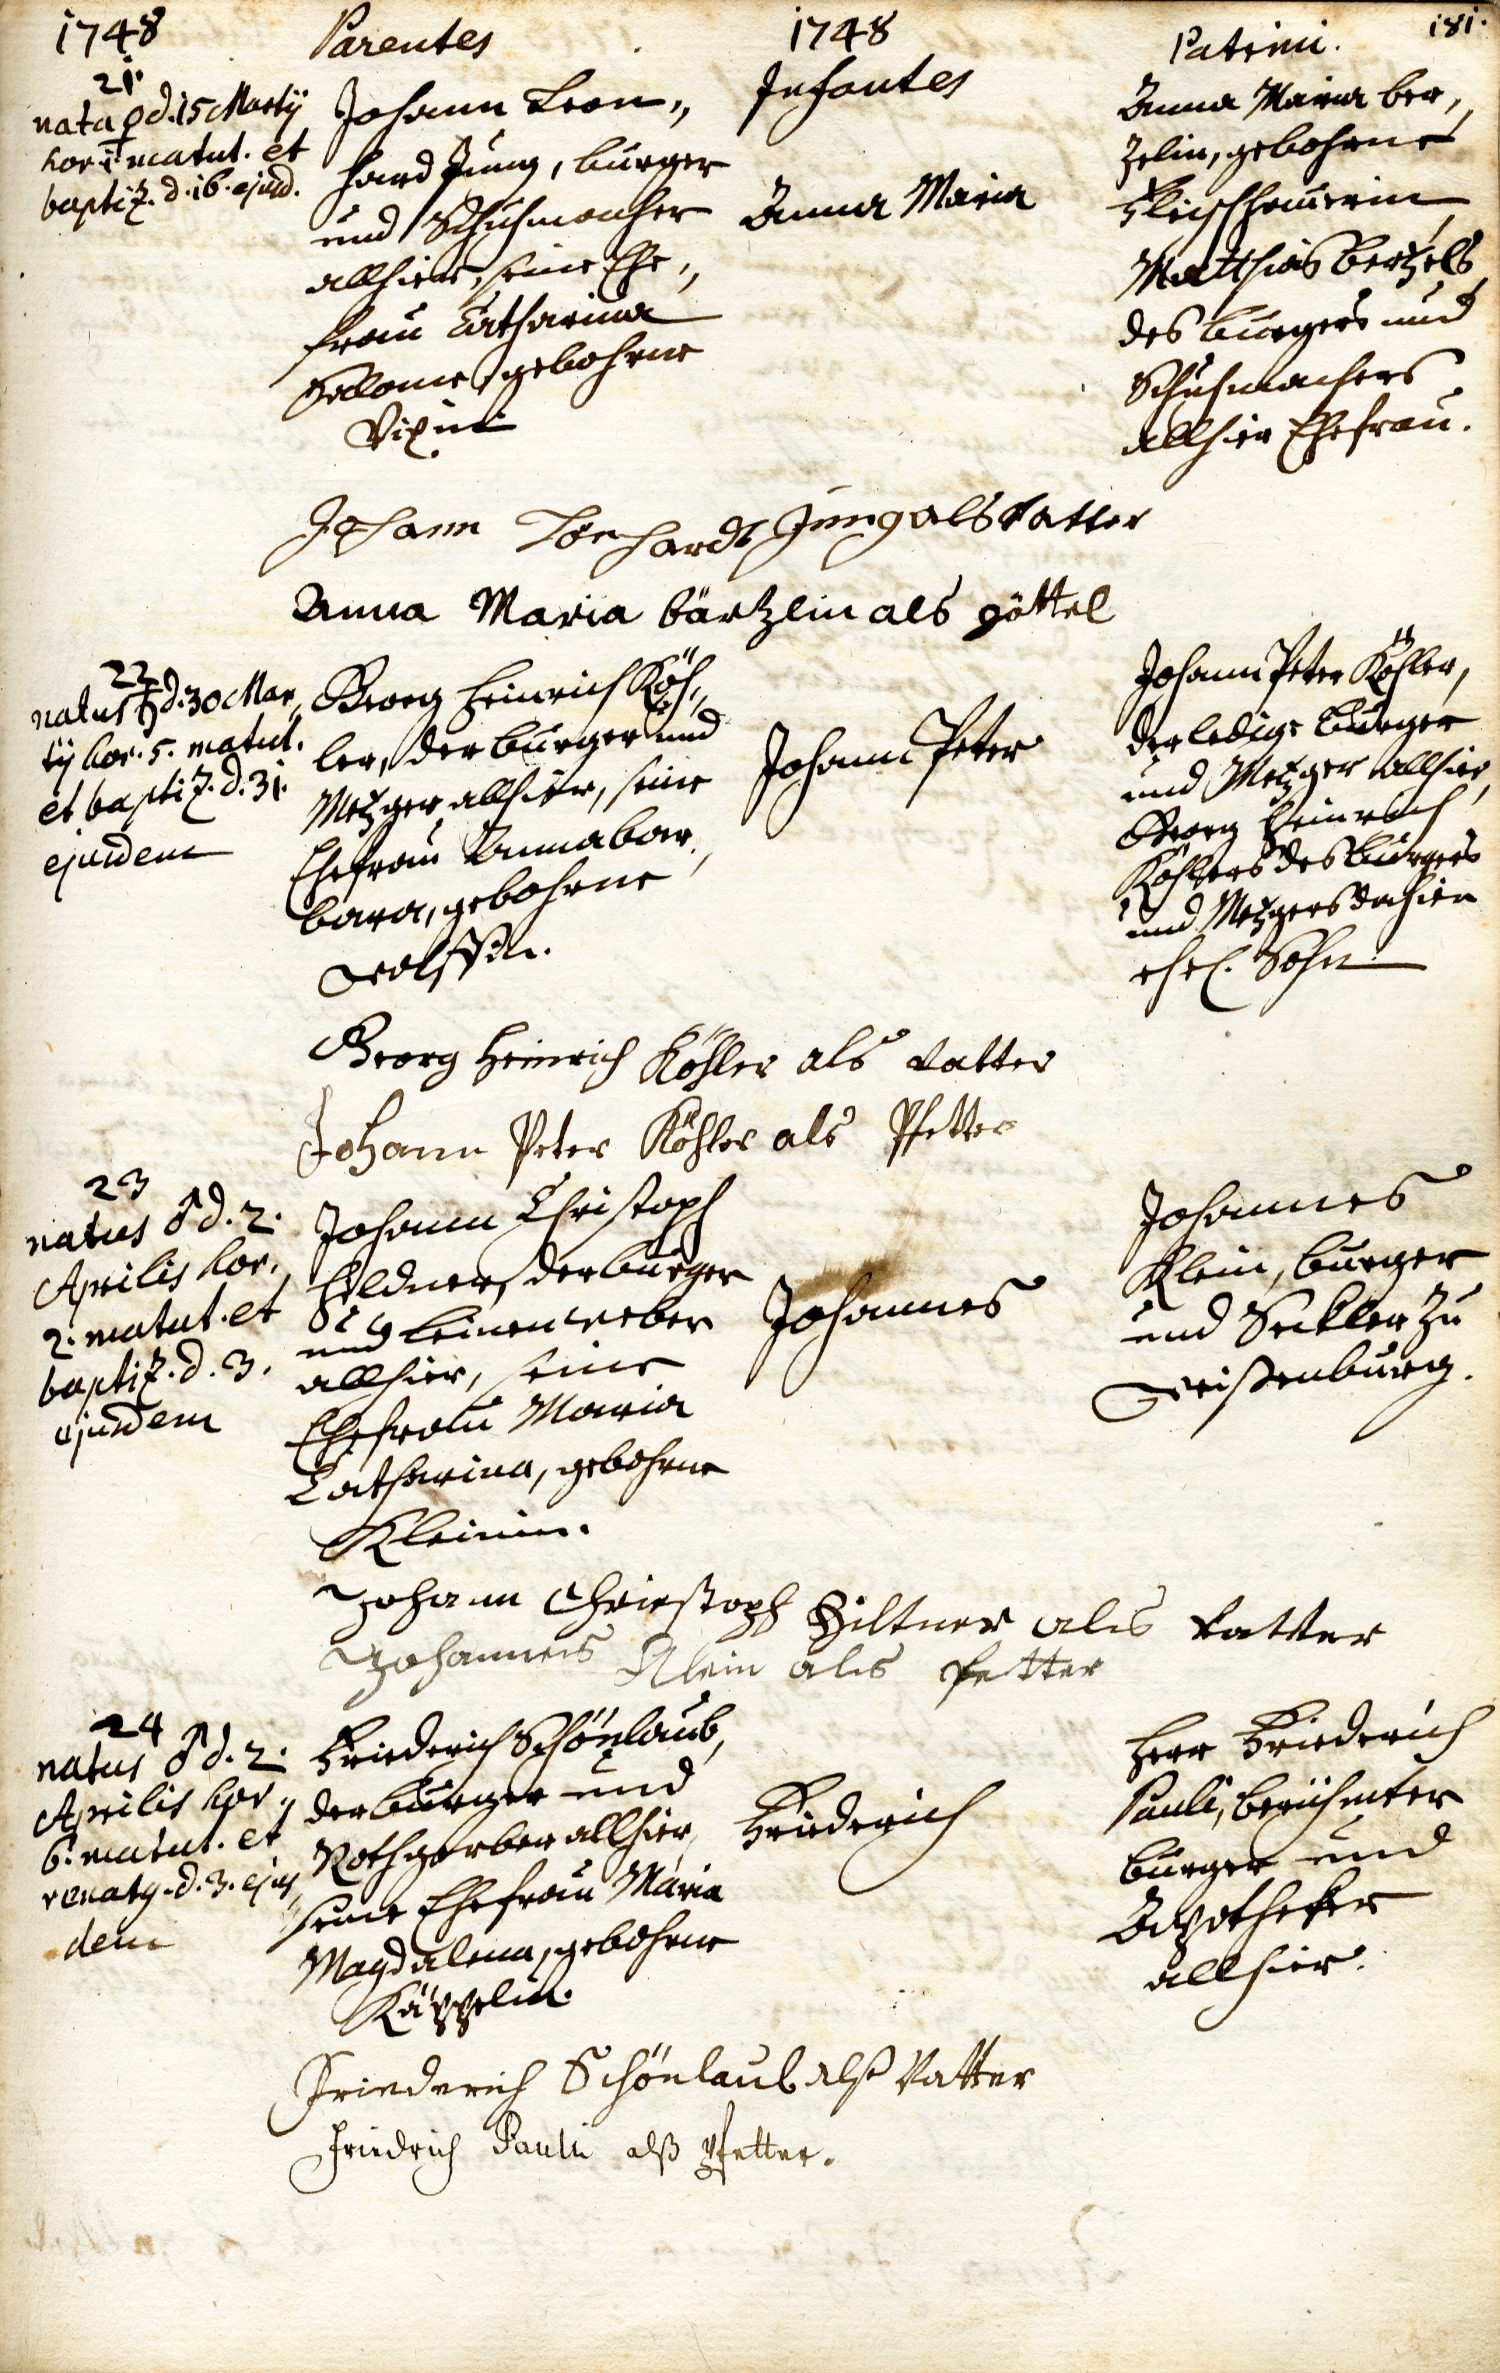 1748
Parentes
1748
Infantes
Patrini.
181.
21.
nata ♀ d. 15 Martij
hor. 1. matut. et
baptiz. d. 16. ejusd.
Johann Leon„
hard Jung, burger
und Schuhmacher
allhier, seine Ehe„
frau Catharina
Salome, gebohrne
Anna Maria
Anna Maria ber„
zelin, gebohrne
Fleischhauerin,
Matthias Bertzels
des burgers und
Schuhmachers
allhier Ehefrau.
Johann Leonhardt Jung als Vatter
Anna Maria bärtzlin als göttel
22
natus ♄ d. 30 Mar„
tij hor. 5. matut.
et baptiz. d. 31.
ejusdem
Georg Heinrich Köh„
ler, der burger und
Metzger allhier, seine
Ehefrau Anna bar„
bara, gebohrne
Wolffin.
Johann Peter
Johann Peter Köhler,
der ledige burger
und Metzger allhier,
Georg Heinrich
Köhlers des burgers
und Metzgers dahier
ehel. Sohn.
Georg Heinrich Köhler als Vatter
Johann Peter Köhler als Pfetter
23
natus ♂ d. 2.
Aprilis hor.
2. matut. et
baptiz. d. 3.
ejusdem
Johann Christoph
Hildner, der burger
und leinenweber
allhier, seine
Ehefrau Maria
Catharina, gebohrne
Kleinin.
Johannes
Johannes
Klein, burger
und Seckler zu
Weißenburg.
Johann Chriestoph Hiltner als Vatter
Johannes Klein als Petter
24
natus ♂ d. 2.
Aprilis hor.
6. matut. et
renatq. d. 3. ejus„
dem
Friederich Schönlaub,
der burger und
Rothgerber allhier,
seine Ehefrau Maria
Magdalena, gebohrne
Käppelin.
Friederich
Herr Friederich
Pauli, berühmter
burger und
Apotheker
allhier.
Friederich Schönlaub alß Vatter
Friedrich Pauli alß Pfetter.